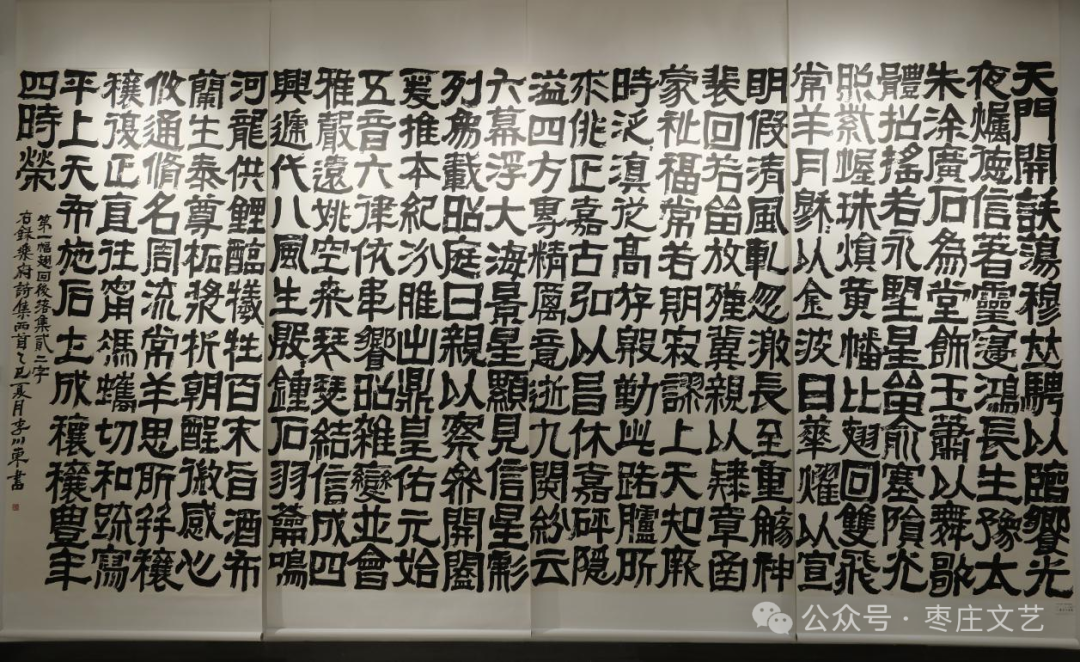 天門開詄蕩穆竝騁以臨饗光
夜爥德信著靈寖鴻長生豫太
朱涂廣石為堂飾玉蕭以舞歌
體招搖若永朢星畱俞塞隕光
照紫幄珠熉黄幡比翅回雙飛
常羊月穆以金波日華燿以宣
明假清風軋忽激長至重觴神
裴回若畱放殣冀親以肆章函
蒙祉福常若期寂漻上天知厥
時泛滇從高斿殷勤此路臚所
求佻正嘉吉弘以昌休嘉砰隱
溢四方專精厲意逝九閡紛云
六幕浮大海景星顯見信星彪
列象載昭庭日親以察參開闔
爰推本紀汾脽出鼎皇佑元始
五音六律依韋饗昭雜變並會
雅聲遠姚空桑琴瑟結信成四
興遞代八風生殷鐘石羽籥鳴
河龍供鯉醇犧牲百末旨酒布
蘭生泰尊柘漿析朝酲微感心
攸通脩名周流常羊思所并穰
穰復正直往甯馮蠵切和疏寫
平上天布施后土成穰穰豐年
四時榮
第一幅翅回後落集貳二字
右録樂府詩集兩首乙巳夏月李川東書
公众号·枣庄文艺